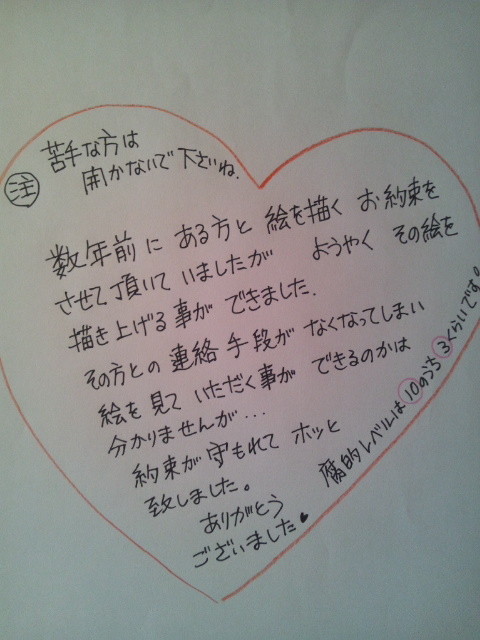 注 苦手な方は
開かないで下さいね.
数年前に ある方と 絵を描く お約束を
させて頂いて いましたが ようやく その絵を
描き上げる事が できました.
その方との 連絡手段が なくなってしまい
絵を見て いただく事が できるのかは
分かりませんが…
約束が守もれて ホッと
致しました。
ありがとう
ございました♥
腐的レベルは⑩のうち③くらいです。